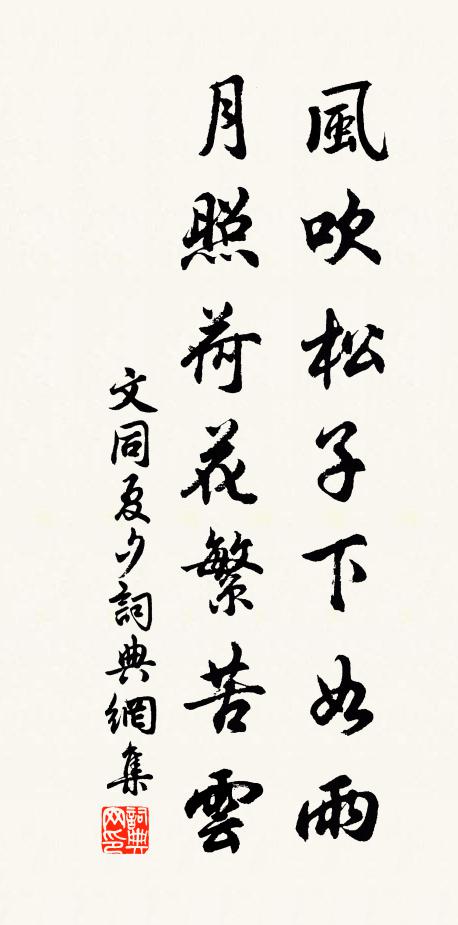 風吹松子下如雨
月照荷花繁苦雲
文同夏夕詞典網集
詞典
网印